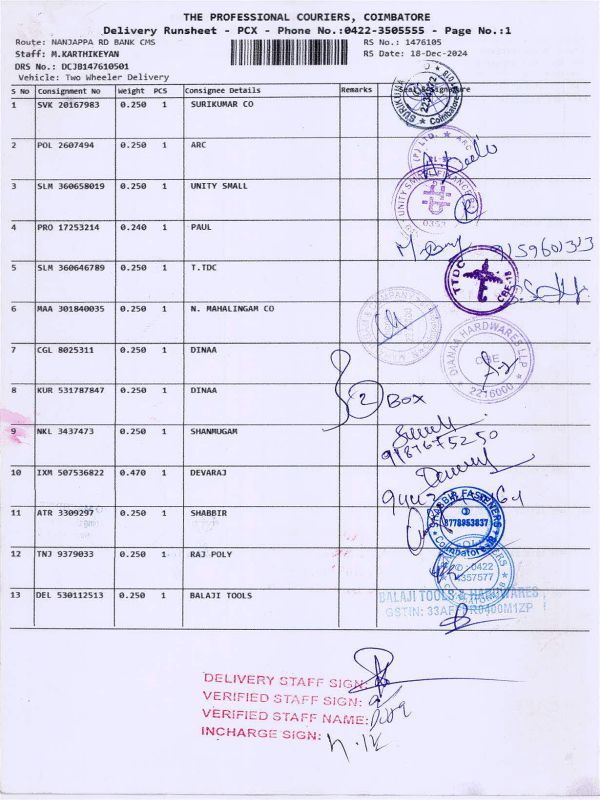 THE PROFESSIONAL COURIERS, COIMBATORE
Delivery Runsheet - PCX - Phone No.:0422-3505555 - Page No.:1
Route: NANJAPPA RD BANK CMS RS No.: 1476105
Staff: M.KARTHIKEYAN RS Date: 18-Dec-2024
DRS No.: DCJB147610501
Vehicle: Two Wheeler Delivery
S No Consignment No Weight PCS Consignee Details Remarks Seal & Signature
1 SVK 20167983 0.250 1 SURIKUMAR CO
2 POL 2607494 0.250 1 ARC
3 SLM 360658019 0.250 1 UNITY SMALL
4 PRO 17253214 0.240 1 PAUL
5 SLM 360646789 0.250 1 T.TDC
TTDC
6 MAA 301840035 0.250 1 N. MAHALINGAM CO
7 CGL 8025311 0.250 1 DINAA
DIANAA HARDWARES LLP
CBE
2216000
8 KUR 531787847 0.250 1 DINAA
2 BOX
9 NKL 3437473 0.250 1 SHANMUGAM
10 IXM 507536822 0.470 1 DEVARAJ
11 ATR 3309297 0.250 1 SHABBIR
SHABBIR FASTENERS
9778953837
Coimbatore-18
12 TNJ 9379033 0.250 1 RAJ POLY
13 DEL 530112513 0.250 1 BALAJI TOOLS
BALAJI TOOLS & HARDWARES
DELIVERY STAFF SIGN:
VERIFIED STAFF SIGN:
VERIFIED STAFF NAME:
INCHARGE SIGN: